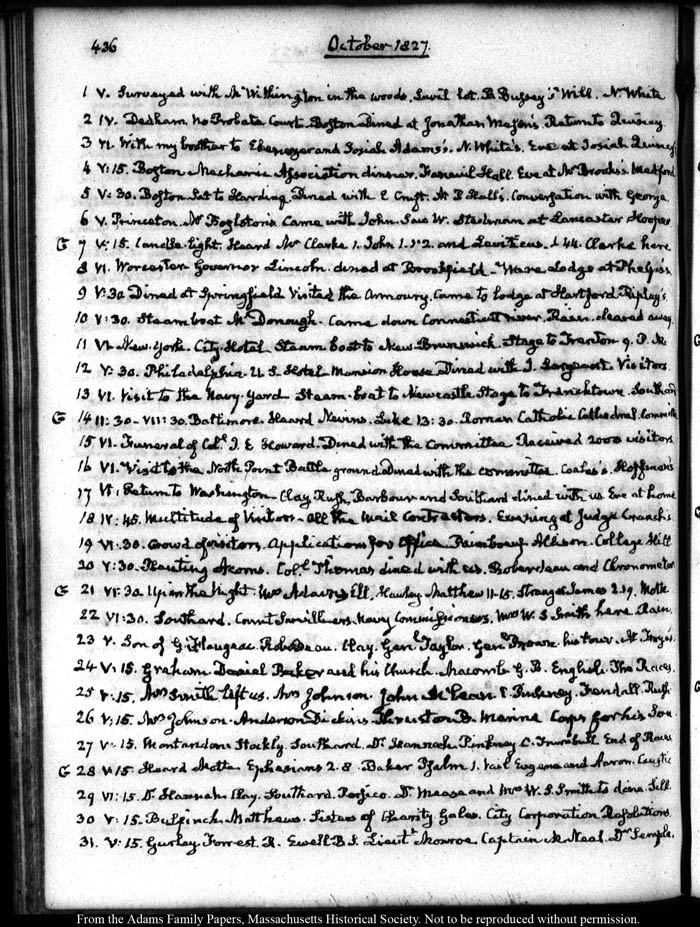 436 October 1827.
1 V. Surveyed with Mr Withington in the woods. Savil lot. B Bussey's Will. N. White
2 IV. Dedham no Probate Court. Boston Dined at Jonathan Mason's. Return to Quincy
3 VI. With my brother to Ebenezer and Josiah Adams's. N. White's. Eve at Josiah Quincy's
4 V:15. Boston Mechanic Association dinner. Faneuil Hall. Eve at Mr Brooks's. Medford
5 V:30. Boston Sat to Harding. Dined with E Cruft. At B Hall's. Conversation with George.
6 V. Princeton. Mr Boylston's Came with John. Saw W. Stedman at Lancaster
G 7 V:15. Candle-light. Heard Mr Clarke 1. John 1. 1.2. and Leviticus. 44. Clarke here
8 VI. Worcester Governor Lincoln. dined at Brookfield. Ware Lodge at Phelps's
9 V:30 Dined at Springfield Visited the Armoury. Came to lodge at Hartford. Ripley's.
10 V:30. Steamboat McDonough. Came down Connecticut river. Rain. cleared away
11 VI. New-York. City-Hotel Steam boat to New Brunswick. Stage to Trenton 9. P.M.
12 V:30. Philadelphia. U.S. Hotel Mansion House Dined with J. Sergeant. Visitors.
13 VI. Visit to the Navy-Yard Steam-boat to Newcastle Stage to Frenchtown. Southard
G 14 II:30-VII:30. Baltimore. Heard Nevins. Luke 13:30. Roman Catholic Cathedral. Committee
15 VI. Funeral of Col. J. E Howard. Dined with the Committee Received 2000 visitors
16 VI. Visit to the North Point Battle ground. Dined with the committee. Coale's. Hoffman's
17 VI: Return to Washington Clay Rush, Barbour and Southard dined with us Eve at home
18 IV:45. Multitude of Visitors. All the Mail Contractors. Evening at Judge Cranch's.
19 VI:30. Crowd of visitors. Applications for Office. Allison. College Hill
20 V:30. Planting Acorns. Col. Thomas dined with us. Roberdeau and Chronometer
G 21 VI:30. Up in the Night. Mrs Adams Ill. Hawley Matthew 11-15. James 2.19. Motte
22 VI:30. Southard. Count Survilliers. Navy Commissioners. Mrs W. S Smith here Rain.
23 V. Son of Roberdeau. Clay. Genl Taylor. Genl Brown. his tour.
24 V:15. Graham. Daniel Baker and his Church. Macomb G. B. English. The Races
25 V:15. Mrs Smith left us. Mrs Johnson. John McLean Kendall. Rush
26 V:15. Mrs Johnson. Anderson Dickins. Thruston B. Marine Corps for his Son
27 V:15. Stockly. Southard. Dr Hannah. Pinkney C. Turnbull End of Races
G 28 V:15. Heard Motte. Ephesians 2.8. Baker Psalm 1. Vail Eugene and Aaron. Caustic
29 VI:15. Dr Hannah. Clay. Southard. Persico. Dr Mease and Mrs W. S. Smith to dine.
30 V:15. Bulfinch. Matthews. Sisters of Charity Gales. City Corporation Resolutions.
31. V:15. Gurley Forrest. R. Ewell B. S. Lieut Monroe Captain McNeal. Dr Semple.
From the Adams Family Papers, Massachusetts Historical Society. Not to be reproduced without permission.